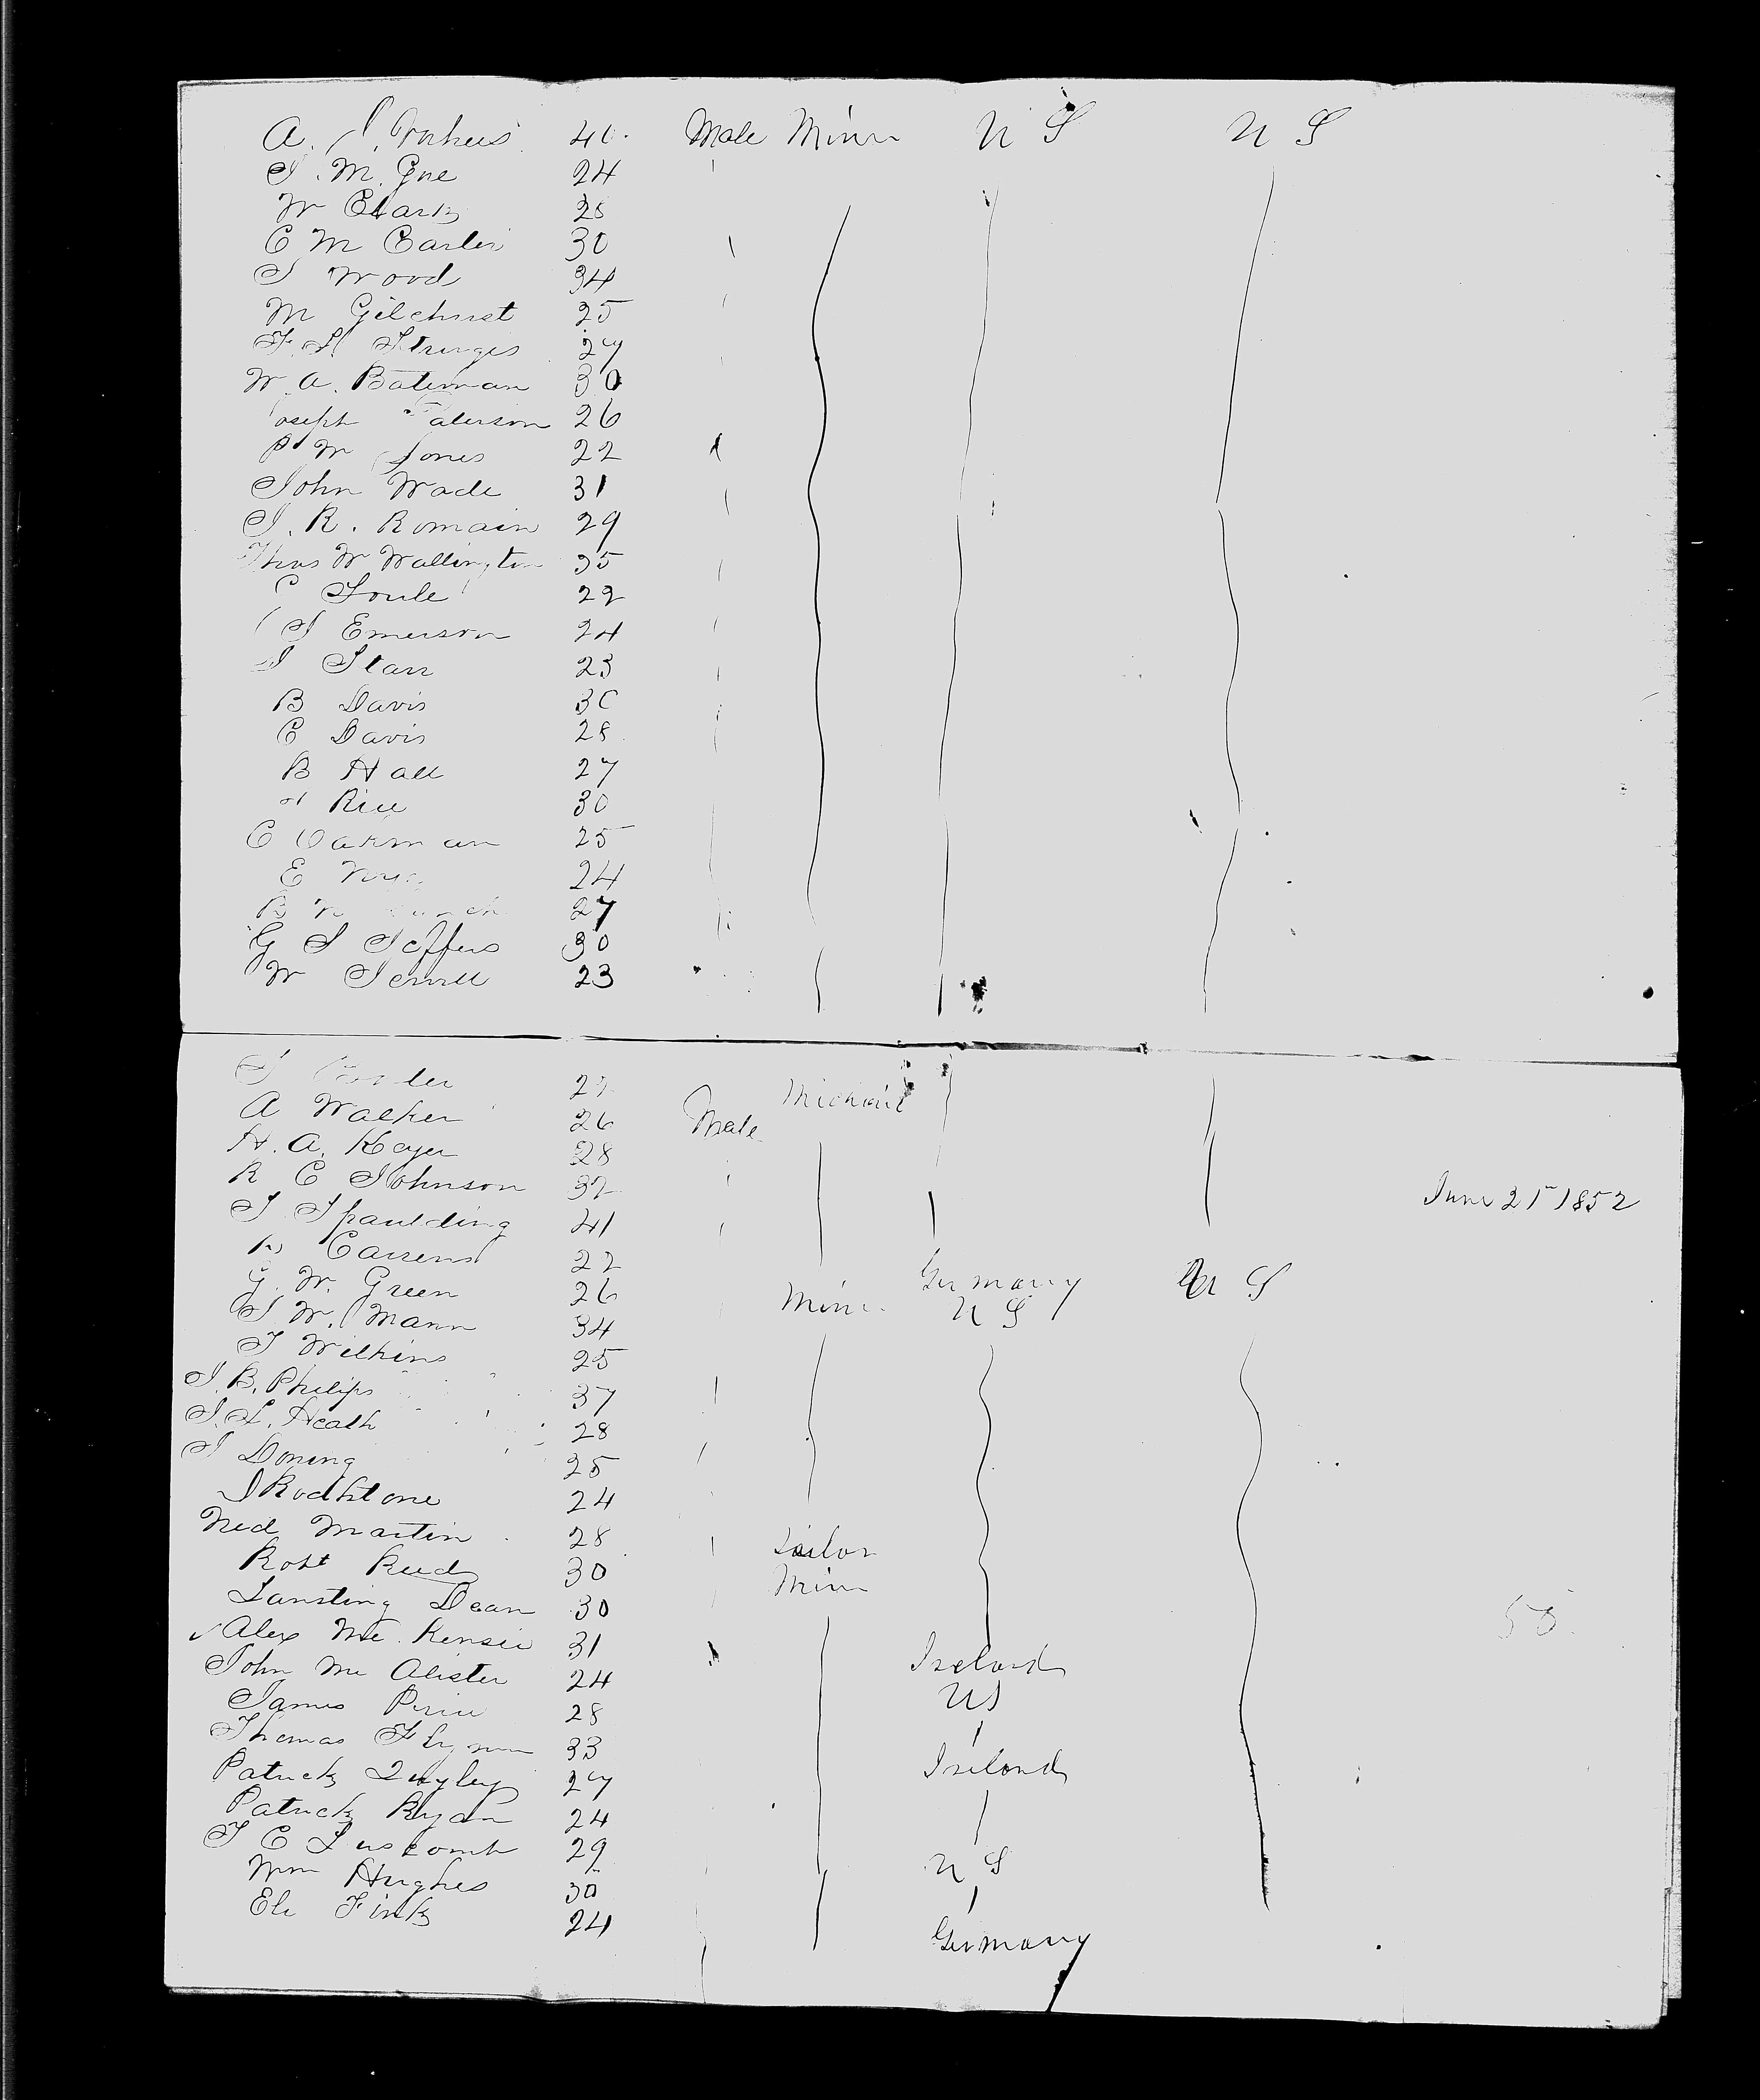 A. 40 Male Minr U S U S
J. M. Gue 24
W Clark 28
C M Carter 30
J Wood 34
M Gilchrist 25
F. L. Sturges 27
W. A. Bateman 30
Joseph Paterson 26
P W Jones 22
John Wade 31
J. R. Romain 29
Thos W Wallington 35
C Soule 22
J Emerson 24
J Starr 23
B Davis 30
C Davis 28
B Hall 27
Rice 30
C Oakman 25
E 24
B 27
G S Jeffers 30
W Sewell 23
J 22 Mechanic
A Walker 26 Male
H. A. Keyer 28
R C Johnson 32 June 21st 1852
J Spaulding 41
22 Germany U S
G. W. Green 26 Minr U S
J W. Mann 34
J Wilkins 25
J. B. Philips 37
J. L. Heath 28
J Doning 25
J Rodhstone 24
Ned Martin 28 Sailor
Robt Reed 30 Minr
Lansting Dean 30 50
Alex Mc. Kensie 31 Ireland
John Mc Alister 24 US
James Price 28
Thomas Flynn 33 Ireland
Patrick Quyley 27
Patrick Ryan 24
J C Luscomb 29 U S
Wm Hughes 30
Eli Fink 24 Germany